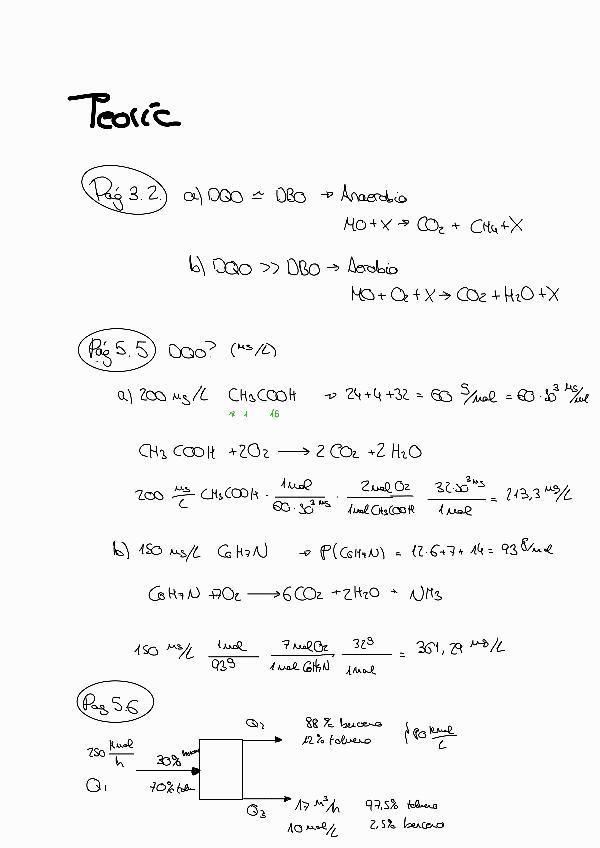 Teoric
Pág 3.2. a) DQO ≃ DBO → Anaerobio
MO + X → CO2 + CH4 + X
b) DQO >> DBO → Aerobio
MO + O2 + X → CO2 + H2O + X
Pág 5.5 DQO? (mg/L)
a) 200 mg/L CH3COOH → 24+4+32 = 60 g/mol = 60·10^3 mg/mol
12 1 16
CH3COOH + 2O2 → 2CO2 + 2H2O
200 mg/L CH3COOH · 1mol/60·10^3 mg · 2mol O2/1mol CH3COOH 32·10^3 mg/1mol = 213,3 mg/L
b) 150 mg/L C6H7N → P(C6H7N) = 12·6+7+14 = 93 g/mol
C6H7N + 7O2 → 6CO2 + 2H2O + NH3
150 mg/L 1mol/93g 7mol O2/1mol C6H7N 32g/1mol = 361,29 mg/L
Pag 5.6
Q2 88% benceno
250 kmol/h 30% 12% tolueno
Q1 70% tol
Q3 17 m^3/h 97,5% tolueno
10 mol/L 2,5% benceno